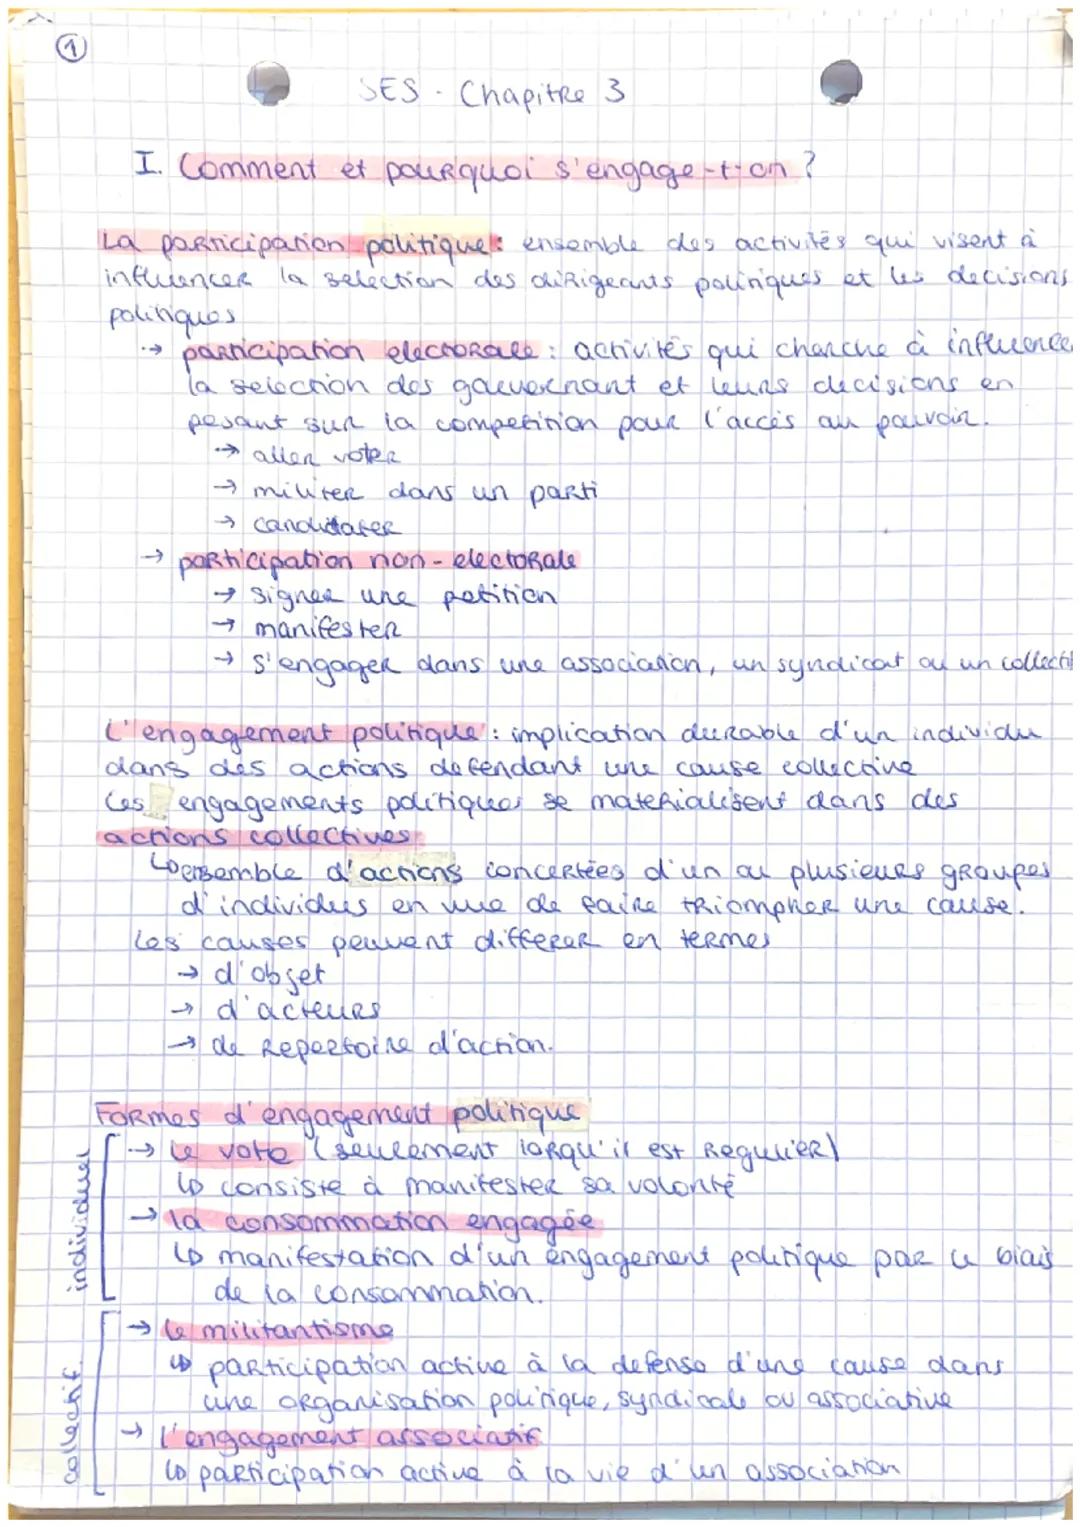 1
SES - Chapitre 3
I. Comment et pourquoi s'engage-t-on ?
La participation politique : ensemble des activités qui visent à
influencer la selection des dirigeants politiques et les decisions
politiques
→ participation electorale : activités qui cherche à influence
la selection des gouvernant et leurs decisions en
pesant sur la competition pour l'accès au pouvoir.
→ aller voter
→ militer dans un parti
→ candidater
→ participation non-electorale
→ signer une petition
→ manifester
→ s'engager dans une association, un syndicat ou un collectif
L'engagement politique : implication durable d'un individu
dans des actions defendant une cause collective
Ces engagements politiques se materialisent dans des
actions collectives
↳ ensemble d'actions concertées d'un ou plusieurs groupes
d'individus en vue de faire triompher une cause.
Les causes peuvent differer en termes
→ d'objet
→ d'acteurs
→ de repertoire d'action.
Formes d'engagement politique
individuel
→ le vote (seulement lorqu'il est regulier)
↳ consiste à manifester sa volonté
→ la consommation engagée
↳ manifestation d'un engagement politique par le biais
de la consommation.
collectif
→ le militantisme
↳ participation active à la defense d'une cause dans
une organisation politique, syndicale ou associative
→ l'engagement associatif
↳ participation active à la vie d'un association